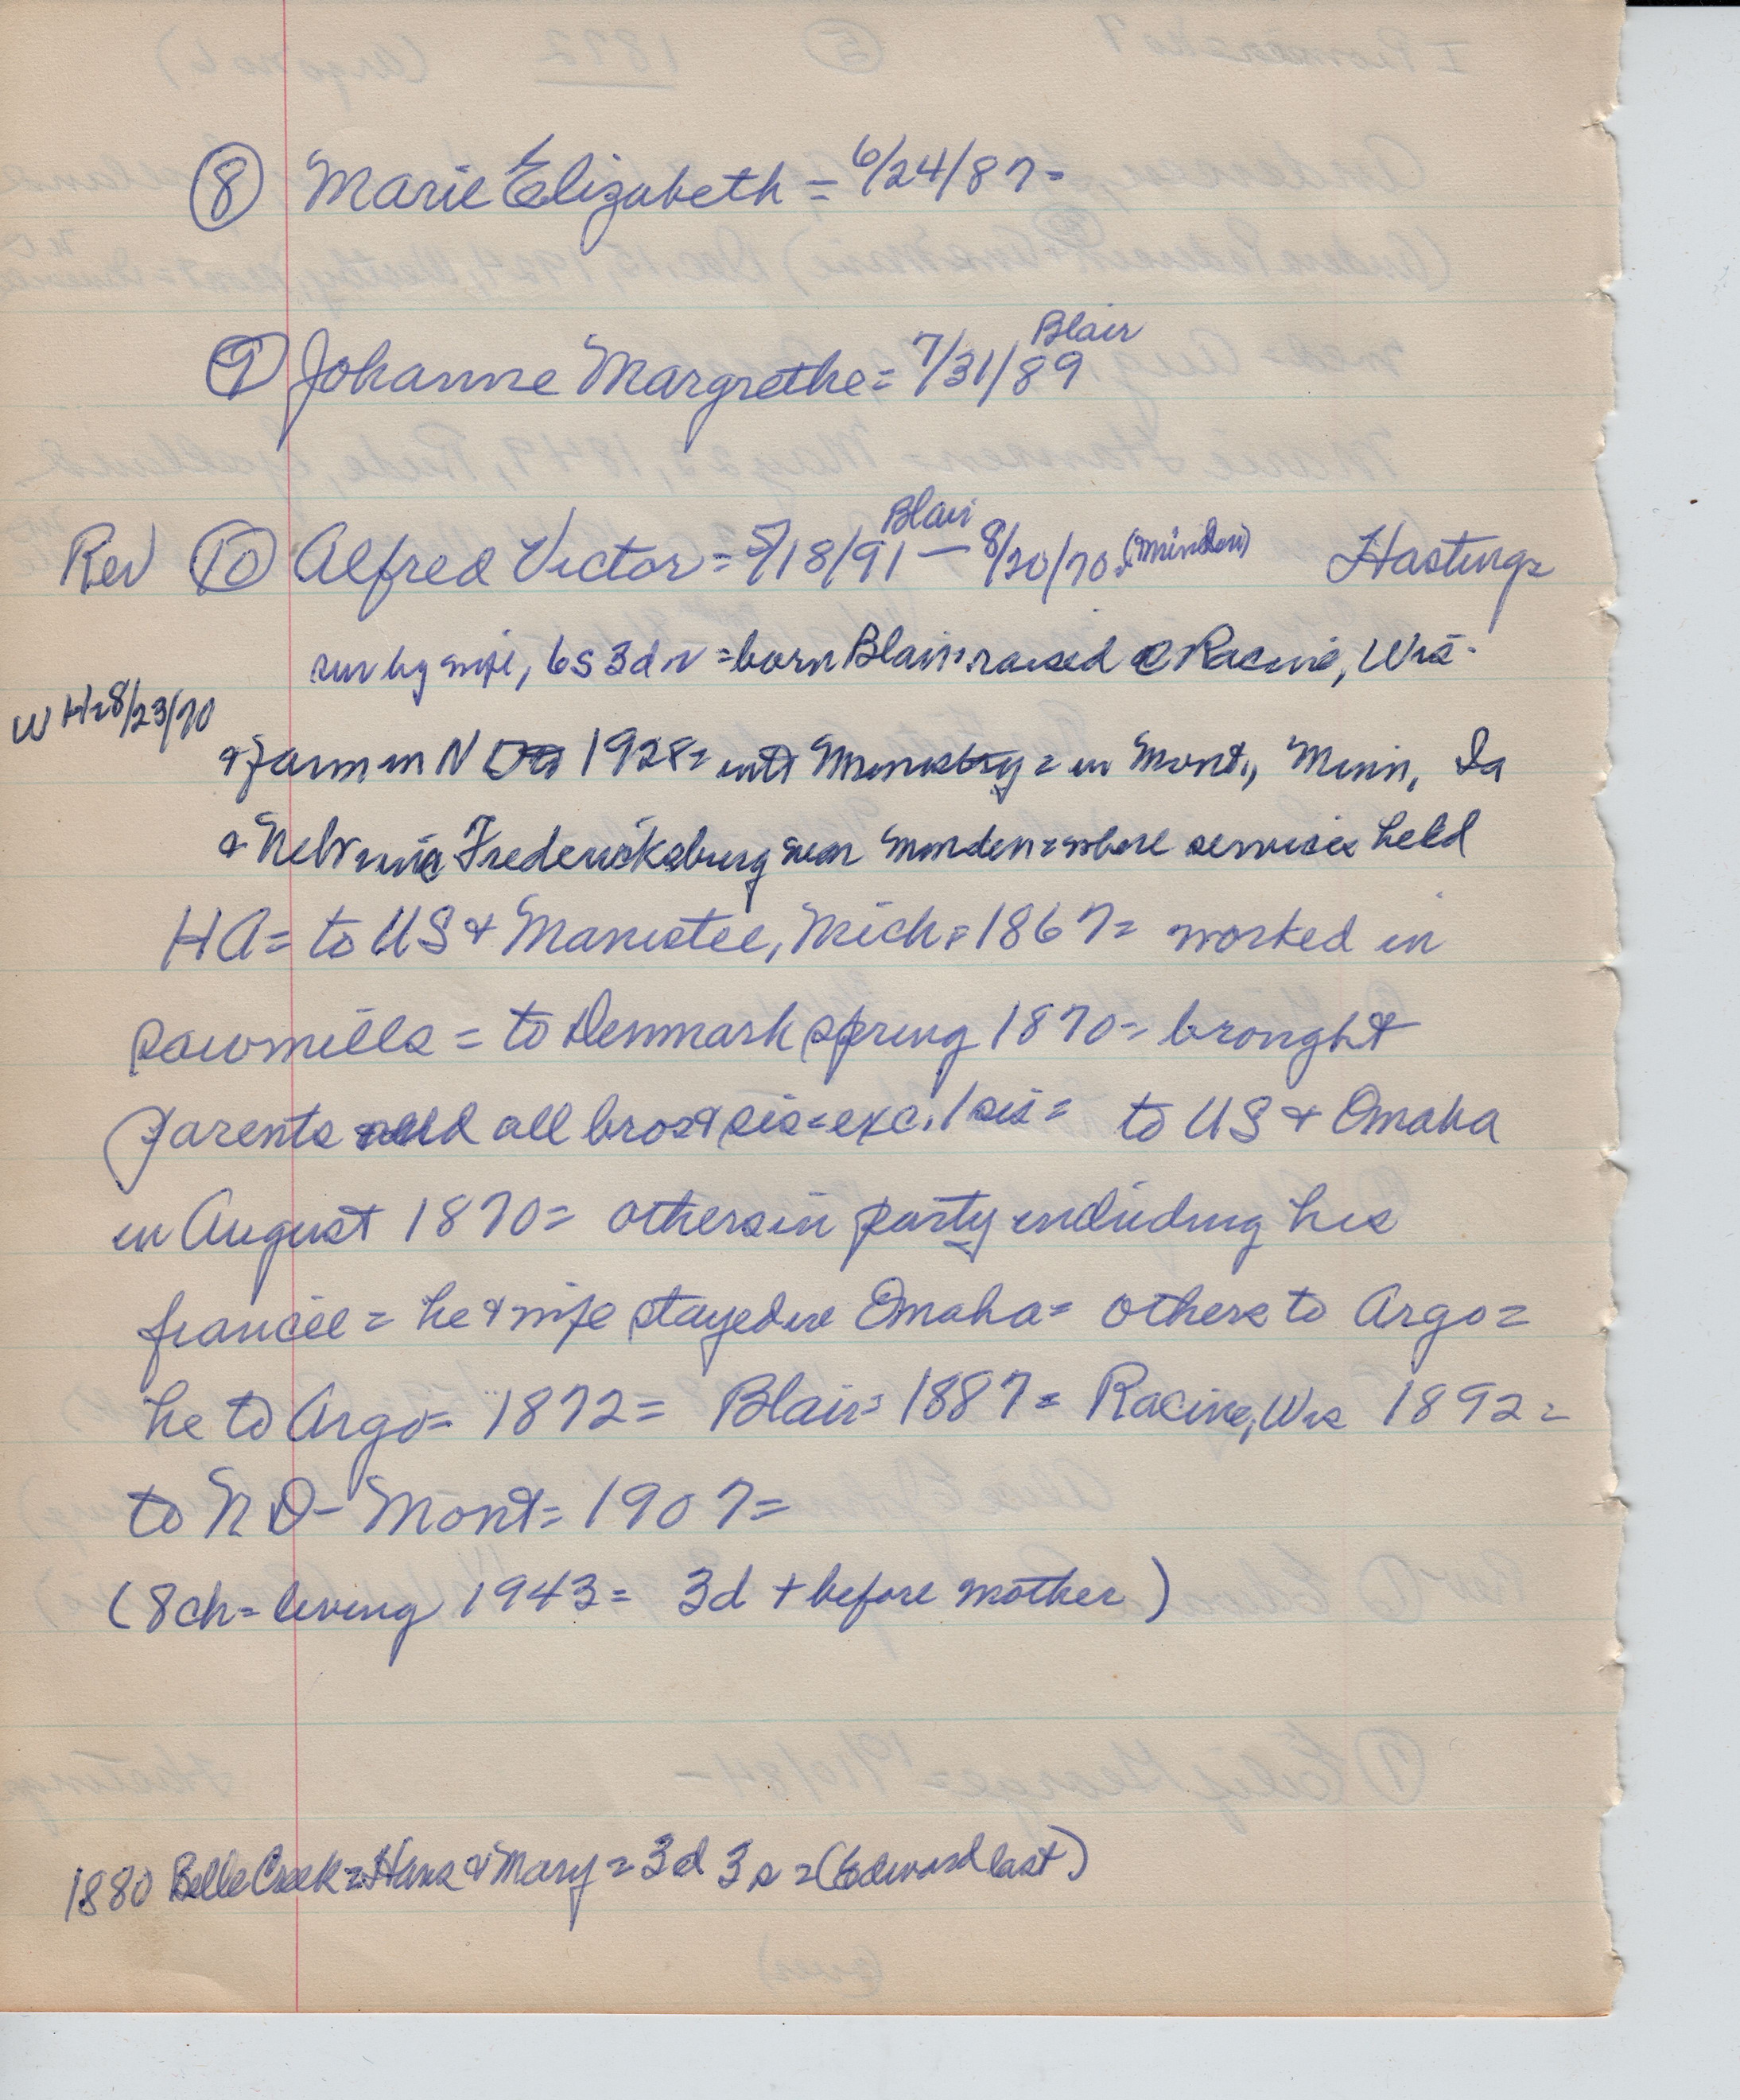 ⑧ Marie Elizabeth = 6/24/87 =
Blair
⑨ Johanne Margrethe = 7/31/89
Blair
Rev ⑩ Alfred Victor = 5/18/91 — 8/20/70 (Minden) Hastings
sur by wife, 6s 3d = born Blair = raised Racine, Wis.
WH = 8/23/70
+ farm in N Da 1928 = into Ministry = in Mont., Minn, Ia
+ Nebr Fredericksburg near Minden = where services held
HA = to US + Manistee, Mich = 1867 = worked in
sawmills = to Denmark spring 1870 = brought
parents and all bros + sis = exc. 1 sis = to US + Omaha
in August 1870 = others in party including his
fiancee = he + wife stayed in Omaha = others to Argo =
he to Argo = 1872 = Blair = 1887 = Racine, Wis 1892 =
to N D - Mont = 1907 =
(8 ch = living 1943 = 3d + before mother)
1880 Belle Creek = Hans + Mary = 3d 3s = (Edward last)